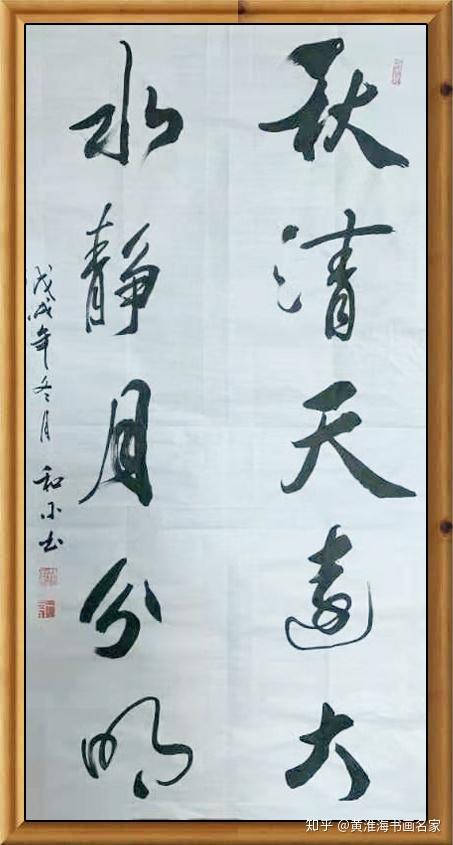 秋清天远大
水静月分明
戊戌年冬月 和平书
知乎 @黄淮海书画名家